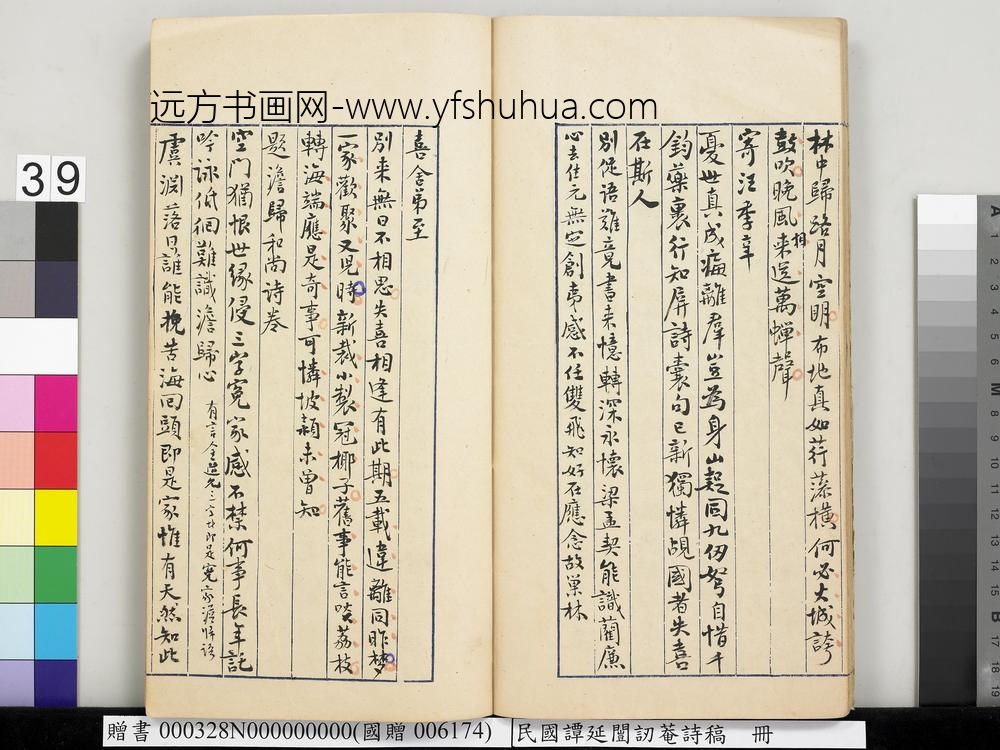 远方书画网-www.yfshuhua.com
林中歸路月空明布地真如荇藻橫何必大城誇
鼓吹晚風來送萬蟬聲
相
寄汪季辛
憂世真成痛離羣豈為身山起同九仞弩自惜千
鈞藥裏行知屏詩囊句已新獨憐覘國者失喜
在斯人
別促語難竟書來憶轉深永懷梁孟契能識藺廉
心去住元無定創夷感不任雙飛知好在應念故巢林
喜舍弟至
別來無日不相思失喜相逢有此期五載違離同昨夢
一家歡聚又見時新裁小製冠椰子舊事能言啖荔枝
轉海端應是奇事可憐坡潁未曾知
題澹歸和尚詩卷
空門猶恨世緣侵三字冤家感不禁何事長年託
吟詠低徊難識澹歸心
虞淵落日誰能挽苦海回頭即是家惟有天然知此
39
A 1 2 3 4 5 6 M 8 9 10 11 12 13 14 15 B 17 18 19
贈書 000328N000000000(國贈 006174) 民國譚延闓訒菴詩稿 冊